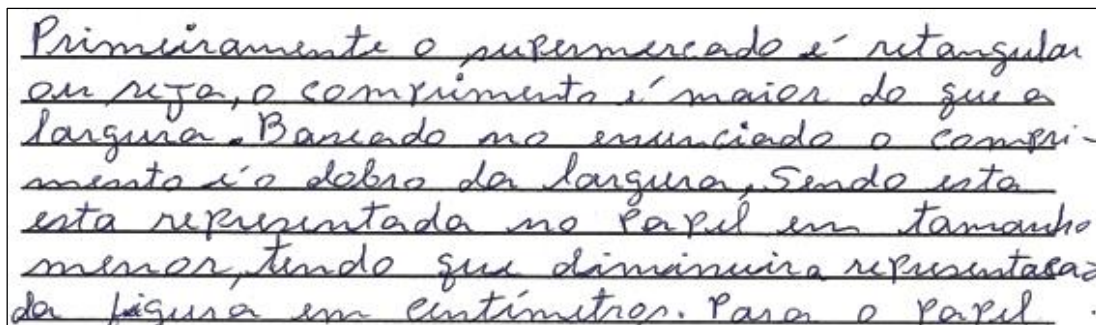 Primeiramente o supermercado é retangular
ou seja, o comprimento é maior do que a
largura. Baseado no enunciado o compri-
mento é o dobro da largura, Sendo esta
esta representada no papel em tamanho
menor, tendo que diminuira representacao
da figura em centímetros. Para o papel